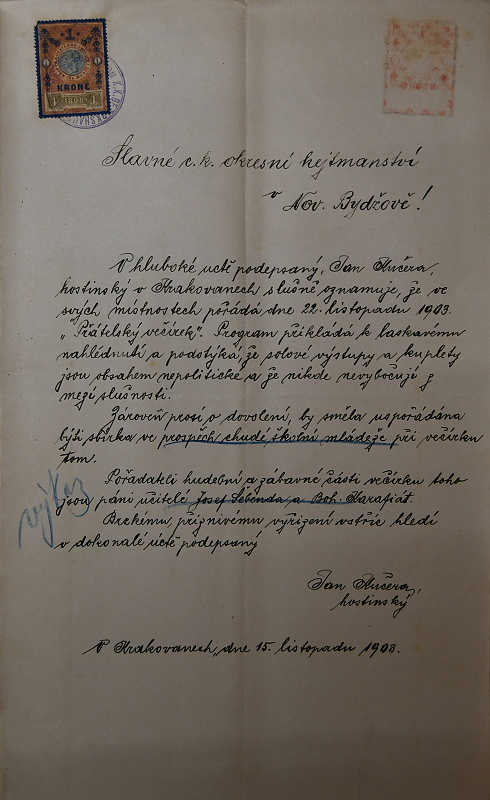 1
KRONE
1898
Slavné c. k. okresní hejtmanství
v
Nov. Bydžově!
V hluboké uctě podepsaný, Jan Kučera,
hostinský v Krakovanech slušně oznamuje, že ve
svých místnostech pořádá dne 22. listopadu 1903.
"Přátelský večírek". Program přikládá k laskavému
nahlédnutí a podotýká, že solové výstupy a kuplety
jsou obsahem nepolitické a že nikde nevybočují z
mezí slušnosti.
Zároveň prosí o dovolení, by směla uspořádána
býti sbírka ve prospěch chudé školní mládeže při večírku
tom.
Pořadateli hudební a zábavné části večírku toho
jsou páni učitelé Josef Lebenda a Boh. Karafiát.
Brzkému příznivému vyřízení vstříc hledí
v dokonalé uctě podepsaný
Jan Kučera,
hostinský
V Krakovanech, dne 15. listopadu 1903.